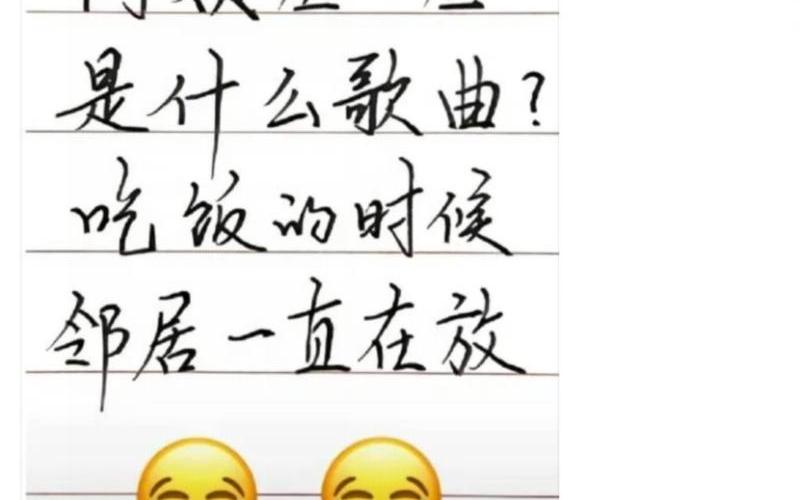 是什么歌曲?
吃饭的时候
邻居一直在放